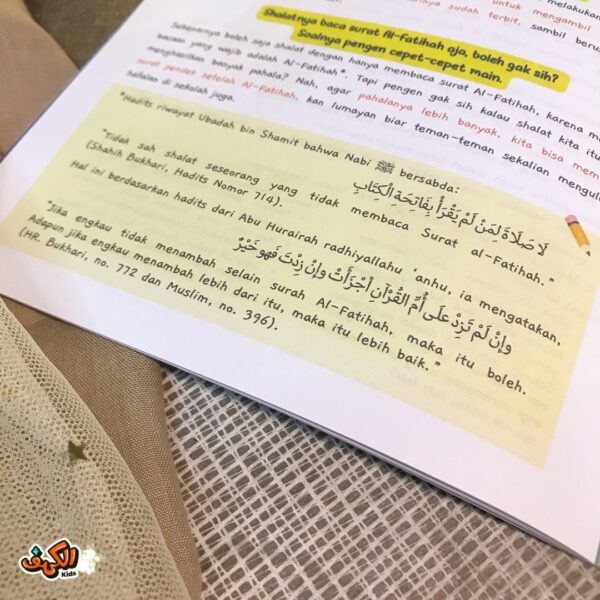 melakukan
untuk mengambil
sudah terbit. sambil berus
Shalatnya baca surat Al-Fatihah aja, boleh gak sih?
Soalnya pengen cepet-cepet main.
Sebenarnya boleh saja shalat dengan hanya membaca surat Al-Fatihah, karena me
bacaan yang wajib adalah Al-Fatihah*. Tapi pengen gak sih kalau shalat kita itu
menghasilkan banyak pahala? Nah, agar pahalanya lebih banyak, kita bisa mem
surat pendek setelah Al-Fatihah, kan lumayan biar teman-teman sekalian mengul
hafalan di sekolah juga.
*Hadits riwayat Ubadah bin Shamit bahwa Nabi ﷺ bersabda:
لَا صَلَاةَ لِمَنْ لَمْ يَقْرَأْ بِفَاتِحَةِ الْكِتَابِ
"Tidak sah shalat seseorang yang tidak membaca Surat al-Fatihah."
(Shahih Bukhari, Hadits Nomor 714).
Hal ini berdasarkan hadits dari Abu Hurairah radhiyallahu 'anhu, ia mengatakan,
وَإِنْ لَمْ تَزِدْ عَلَى أُمِّ الْقُرْآنِ أَجْزَأَتْ وَإِنْ زِدْتَ فَهُوَ خَيْرٌ
"Jika engkau tidak menambah selain surah Al-Fatihah, maka itu boleh.
Adapun jika engkau menambah lebih dari itu, maka itu lebih baik."
(HR. Bukhari, no. 772 dan Muslim, no. 396).
الكهف
Kids